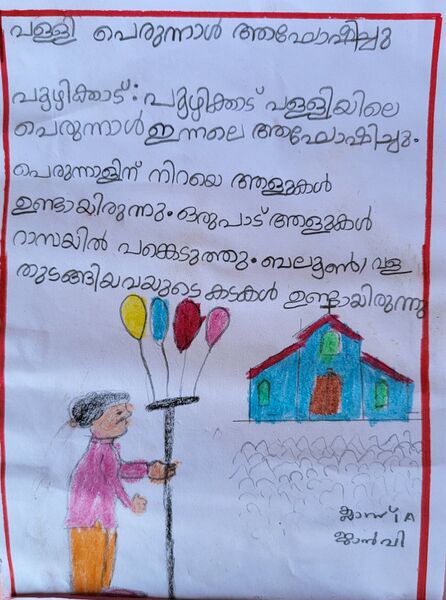 പള്ളി പെരുന്നാൾ ആഘോഷിച്ചു
പൂഴിക്കാട്: പൂഴിക്കാട് പള്ളിയിലെ
പെരുന്നാൾ ഇന്നലെ ആഘോഷിച്ചു.
പെരുന്നാളിന് നിറയെ ആളുകൾ
ഉണ്ടായിരുന്നു. ഒരുപാട് ആളുകൾ
റാസയിൽ പങ്കെടുത്തു. ബലൂൺ, വള
തുടങ്ങിയവയുടെ കടകൾ ഉണ്ടായിരുന്നു
ക്ലാസ്സ് 1 A
ജാൻവി